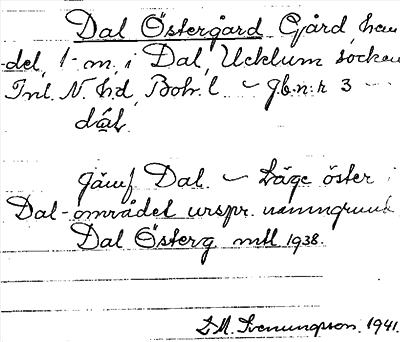 Dal Östergård Gård, hem
-del, 1 m. i Dal, Ucklum socken
Inl. N. hd, Boh. l. – Jb.n:r 3
dál.
Jämf Dal. – Läge öster i
Dal-området urspr. namngrund
Dal Österg mtl 1938.
S. M. Svenungson. 1941.